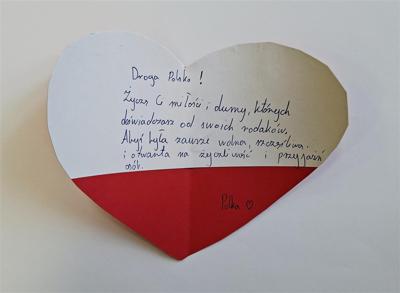 Droga Polsko !
Życzę Ci miłości i dumy, których
doświadczasz od swoich rodaków.
Abyś była zawsze wolna, szczęśliwa
i otwarta na życzliwość i przyjaźń
osób.
Polka ♡